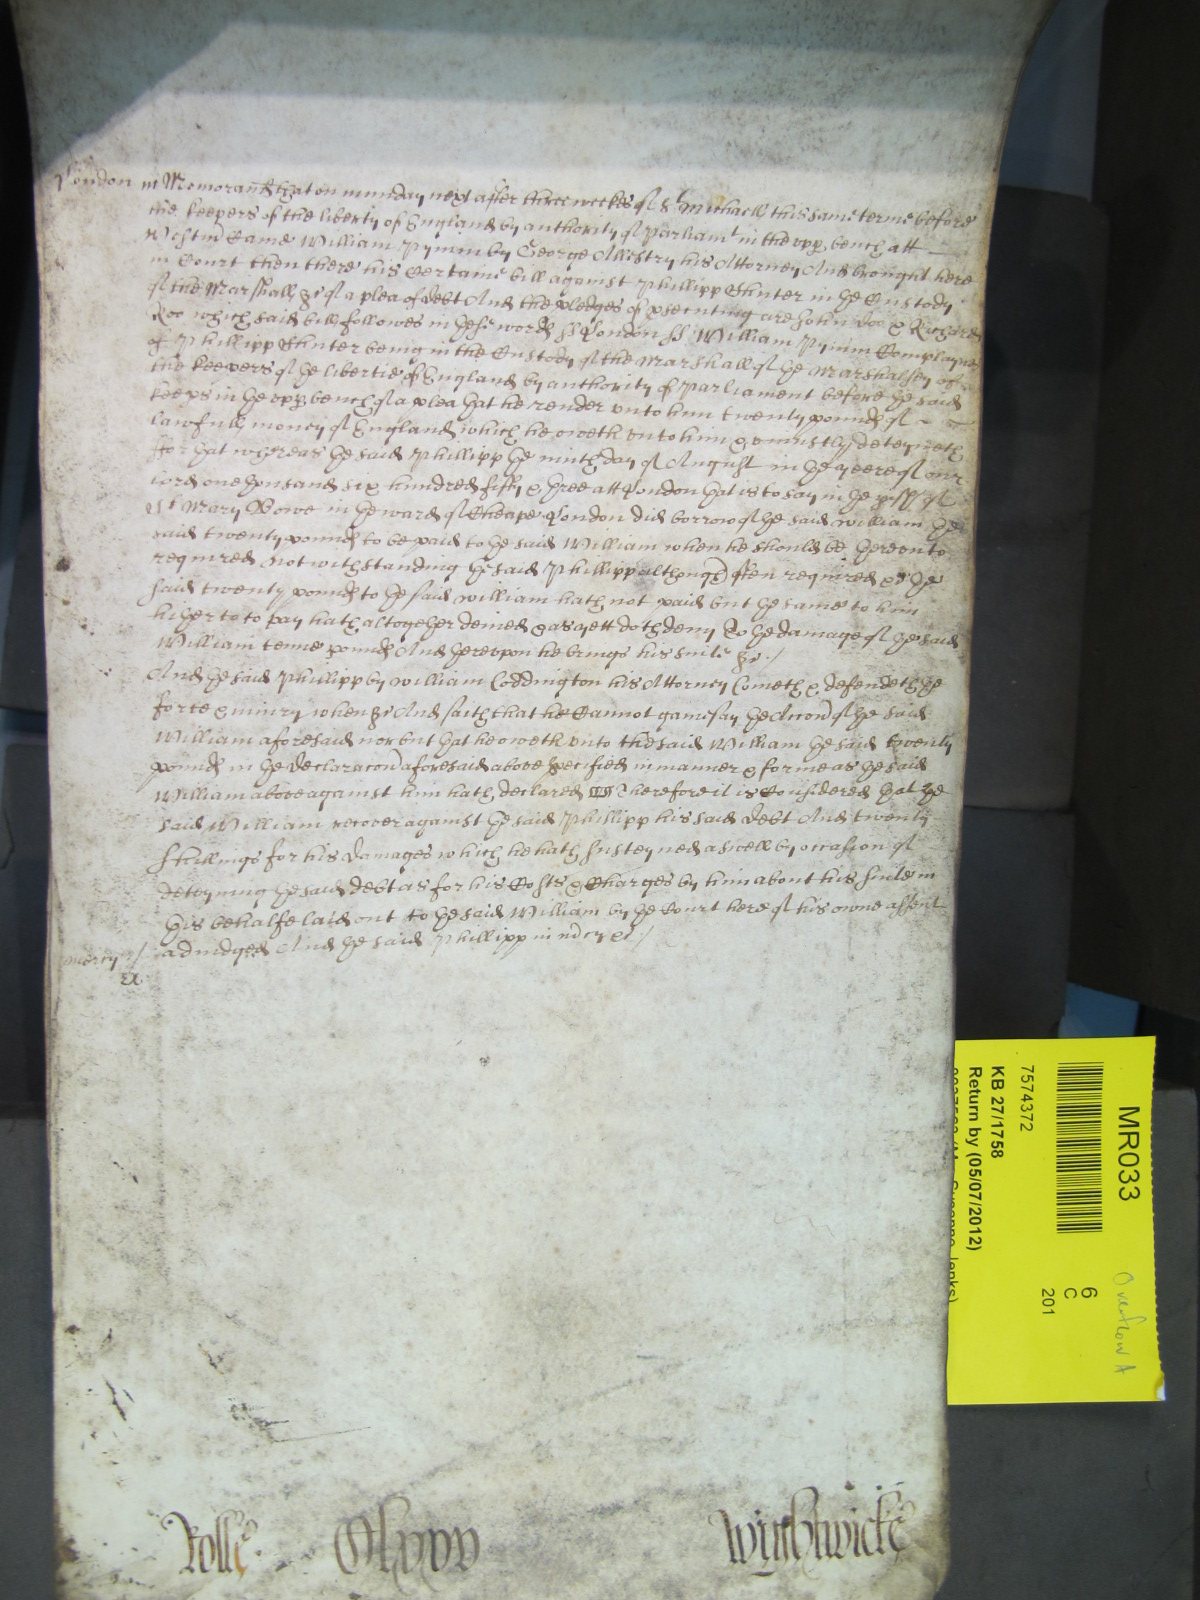 London ss Memorand that on munday next after three weekes of St Michaell this same terme before
the keepers of the liberty of England by authority of Parliamt in the upp bench att
Westmr Came William Pymm by George Allestry his Attorney And brought here
in Court then there his Certaine bill against Phillipp Chunter in the Custody
of the Marshall &c of a plea of debt And the pledges of psecuting are John Doo & Richard
Roo which said bill followes in these words ss London ss William Pymm Complaynes
of Phillipp Chunter being in the Custody of the Marshall of the Marshalsey of
the keepers of the libertie of England by authority of Parliament before the said
keeps in the upp bench of a plea that he render unto him twenty pounds of
lawfull money of England which he oweth unto him & uniustly deteyneth
ffor that whereas the said Phillipp the ninth day of August in the yeere of our
lord one thousand six hundred fifty & three att London that is to say in the pish of
St Mary Bowe in the ward of Cheape London did borrow of the said William the
said twenty pounds to be paid to the said William when he should be thereunto
required Notwithstanding the said Phillipp although often required &c the
said twenty pounds to the said William hath not paid but the same to him
hitherto to pay hath altogether denied & as yett doth deny To the damage of the said
William tenne pounds And thereupon he brings his suite &c /
And the said Phillipp by William Coddington his Attorney Cometh & defendeth the
force & iniury when &c And saith that he Cannot gainesay the Accon of the said
William aforesaid nor but that he oweth unto the said William the said twenty
pounds in the declaracon aforesaid above specified in manner & forme as the said
William above against him hath declared Therefore it is Considered that the
said William recover against the said Phillipp his said debt And twenty
shillings for his damages which he hath susteyned aswell by occasion of
deteyning the said debt as for his Costs & Charges by him about his suite in
this behalfe laid out to the said William by the Court here of his owne assent
mercy / adiudged And the said Phillipp in mercy &c /
Rolle
Wightwicke
MR033
7574372
KB 27/1758
Return by (05/07/2012)
6
C
201
Overflow A